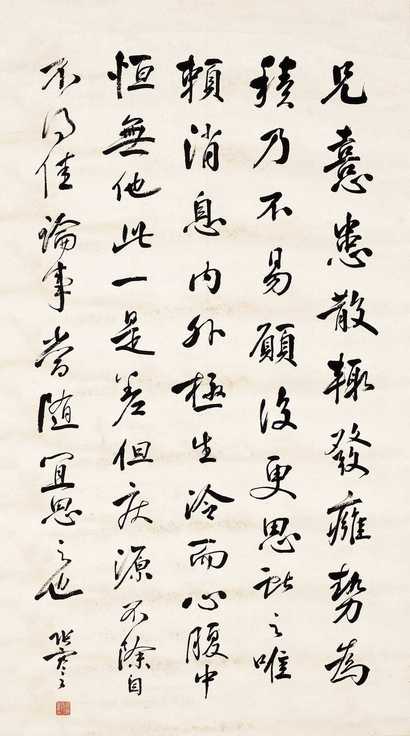 兄憙患散輒發癰勢為
積乃不易願復更思獻之唯
賴消息內外極生冷而心腹中
恒無他此一是差但疾源不除自
不得佳論事當隨宜思之也